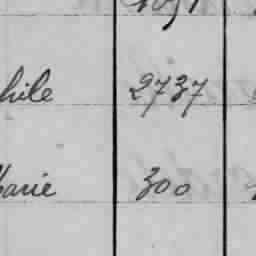 hile 2737
Marie 300